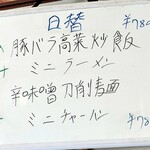 日替
豚バラ高菜炒飯 ¥78
ミニラーメン
辛味噌刀削麺
ミニチャーハン ¥78